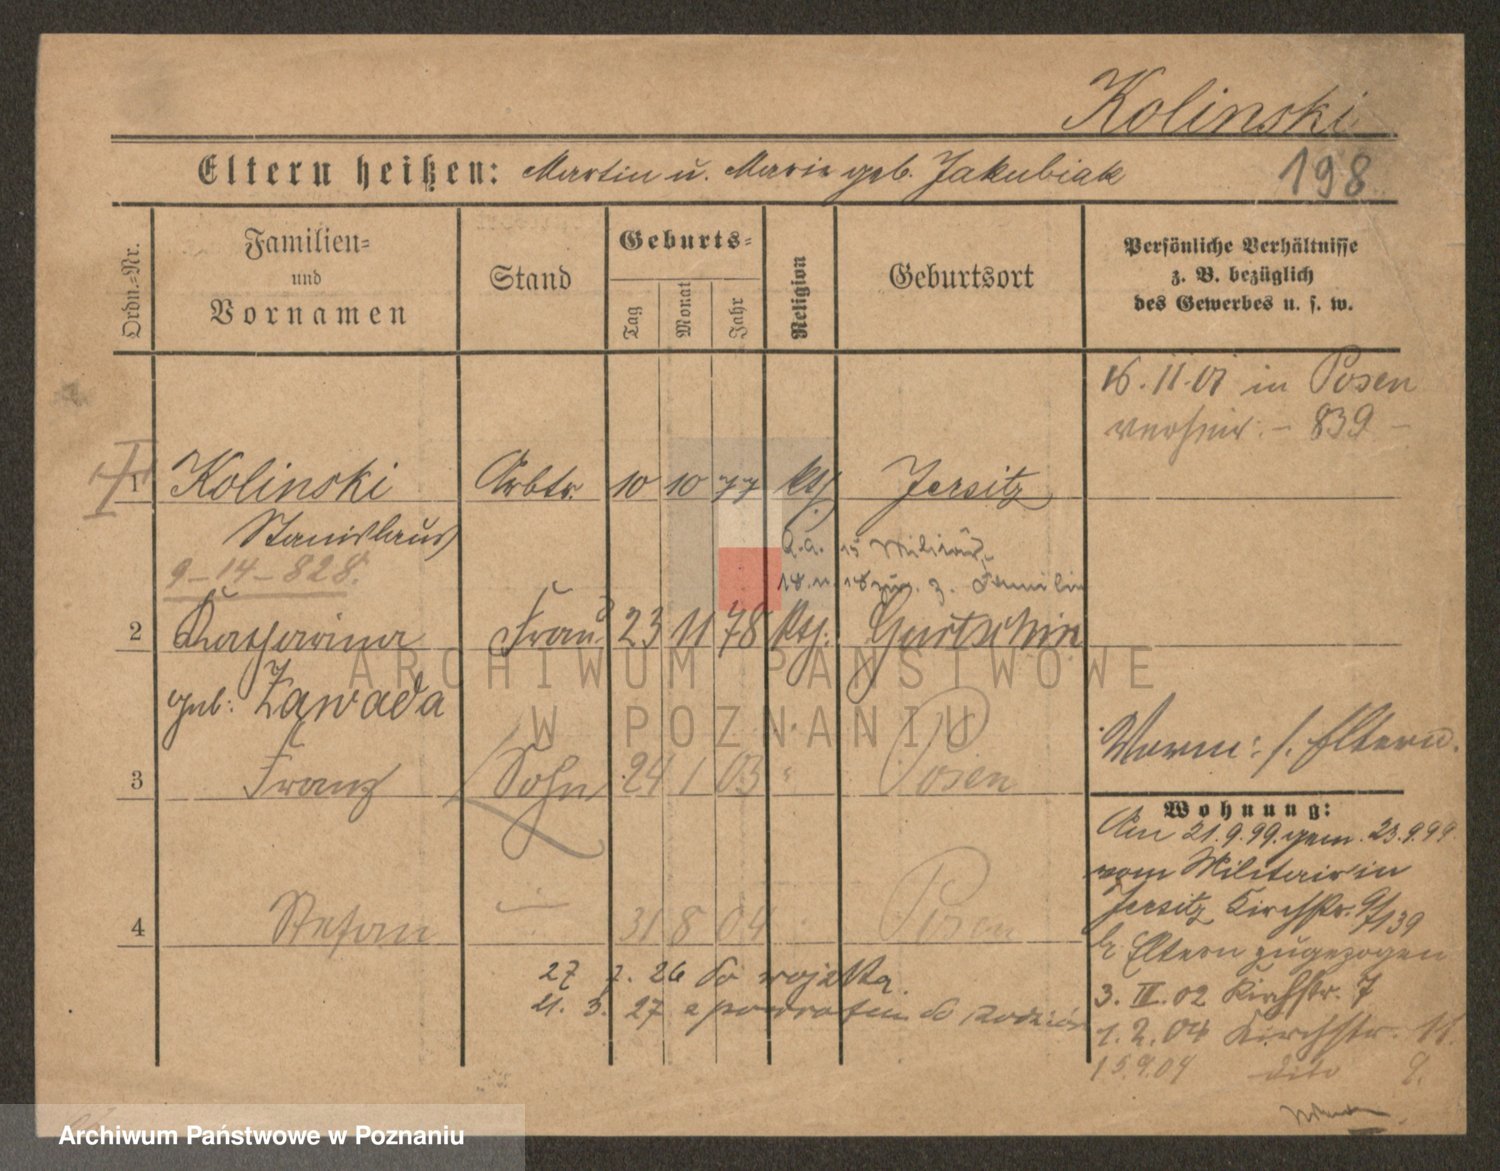 Kolinski
Eltern heißen: Martin u. Marie geb. Jakubiak
198
Ordn.-Nr.
Familien- und Vornamen
Stand
Geburts-
Tag
Monat
Jahr
Religion
Geburtsort
Persönliche Verhältnisse
z. B. bezüglich
des Gewerbes u. s. w.
16.11.01 in Posen
verheir. - 839 -
1 Kolinski Arbtr. 10 10 77 kth. Jersitz
Stanislaus
9-14-828.
15 Militär
18 z. Familie
2 Katharina Frau 23 11 78 kth. Gurtschin
geb. Zawada
Vorm: s. Eltern.
3 Franz Sohn 24 1 03 " Posen
Wohnung:
Am 21.9.99 gem. 23.9.99
vom Militair in
Jersitz Kirchstr. 9/
139
4 Stefan 31 8 04 Posen
b. Eltern zugezogen
27 7. 26 do wojska.
3. II. 02 Kirchstr. 7
21. 3. 27 z powrotem do rodziców
1.2.04 Kirchstr. 11.
15.9.04 dito 9.
ARCHIWUM PAŃSTWOWE
W POZNANIU
Archiwum Państwowe w Poznaniu